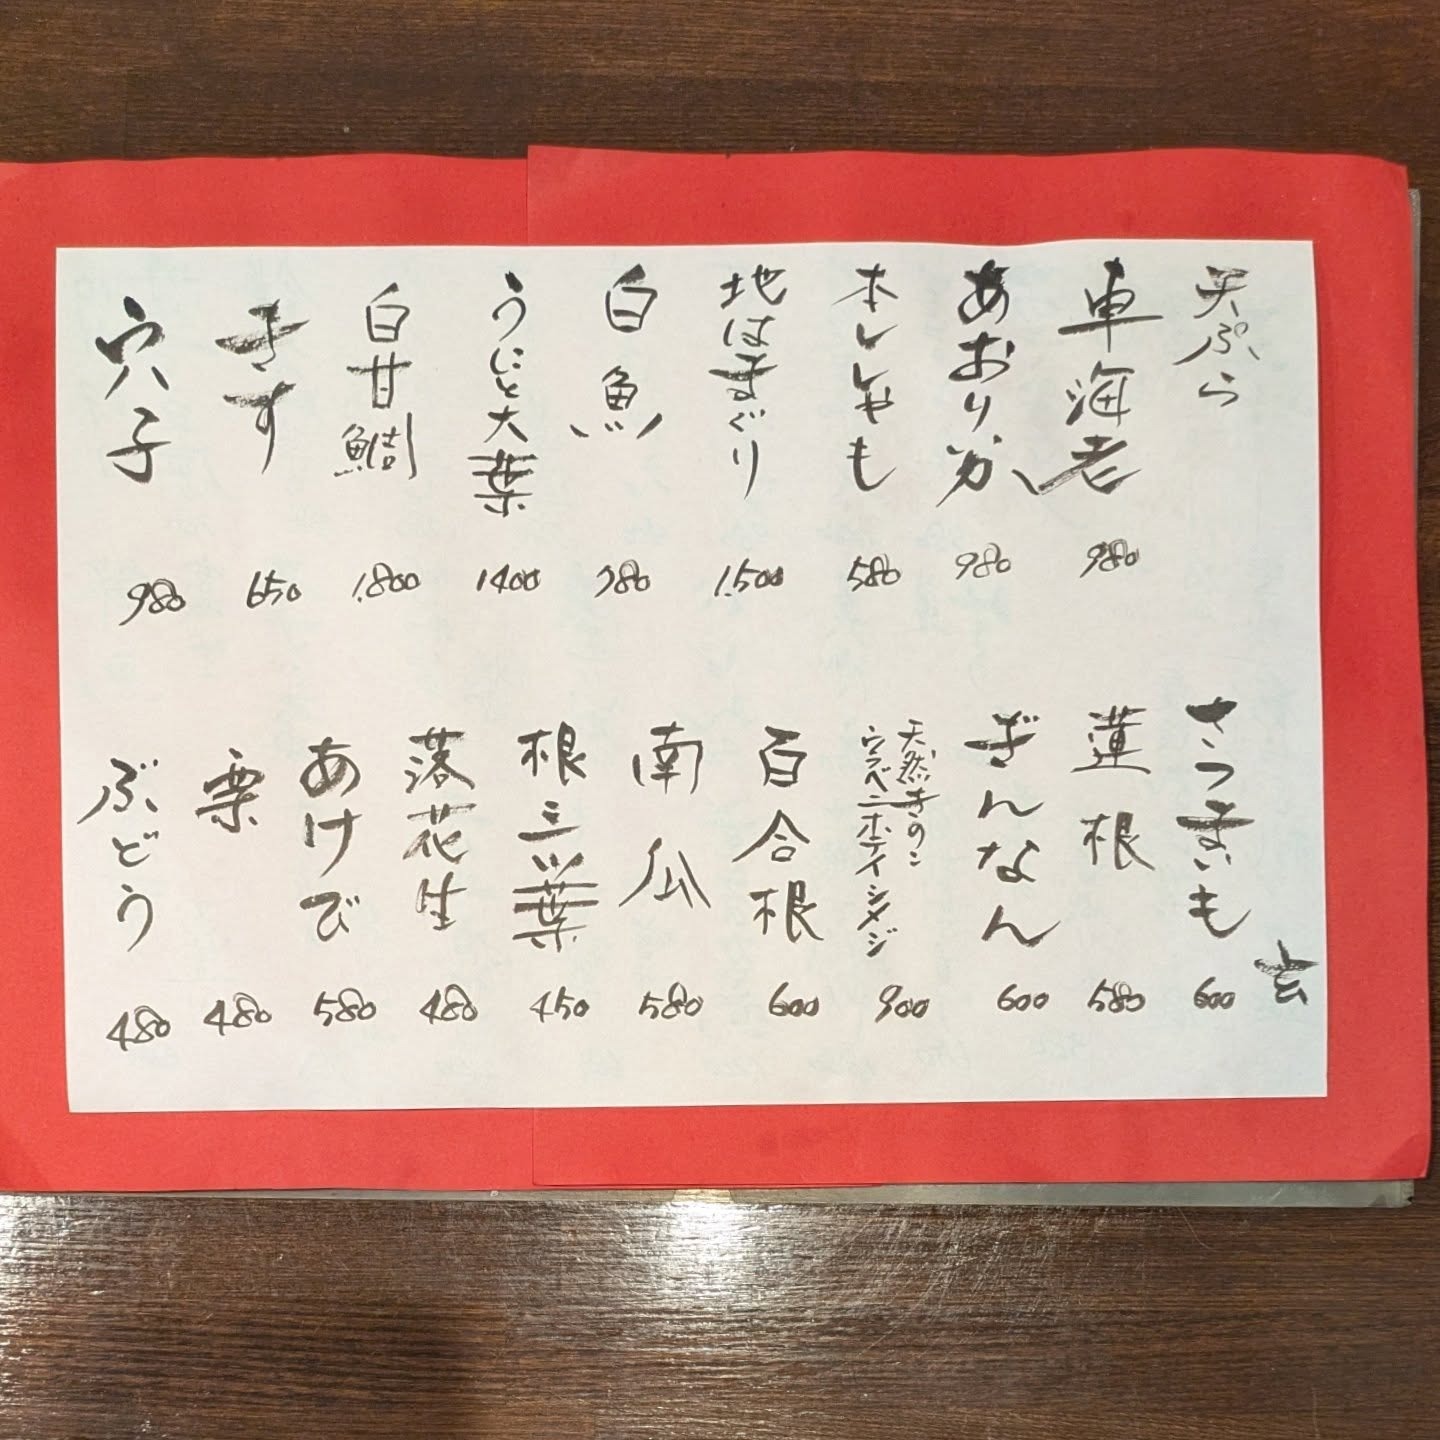 天ぷら
車海老
980
あおりいか
980
本ししゃも
580
地はまぐり
1.500
白魚
780
うにと大葉
1400
白甘鯛
1.800
きす
650
穴子
980
さつまいも
600
蓮根
580
ぎんなん
600
天然きのこ
ウラベニホテイシメジ
900
百合根
600
南瓜
580
根三ツ葉
450
落花生
480
あけび
580
栗
480
ぶどう
480